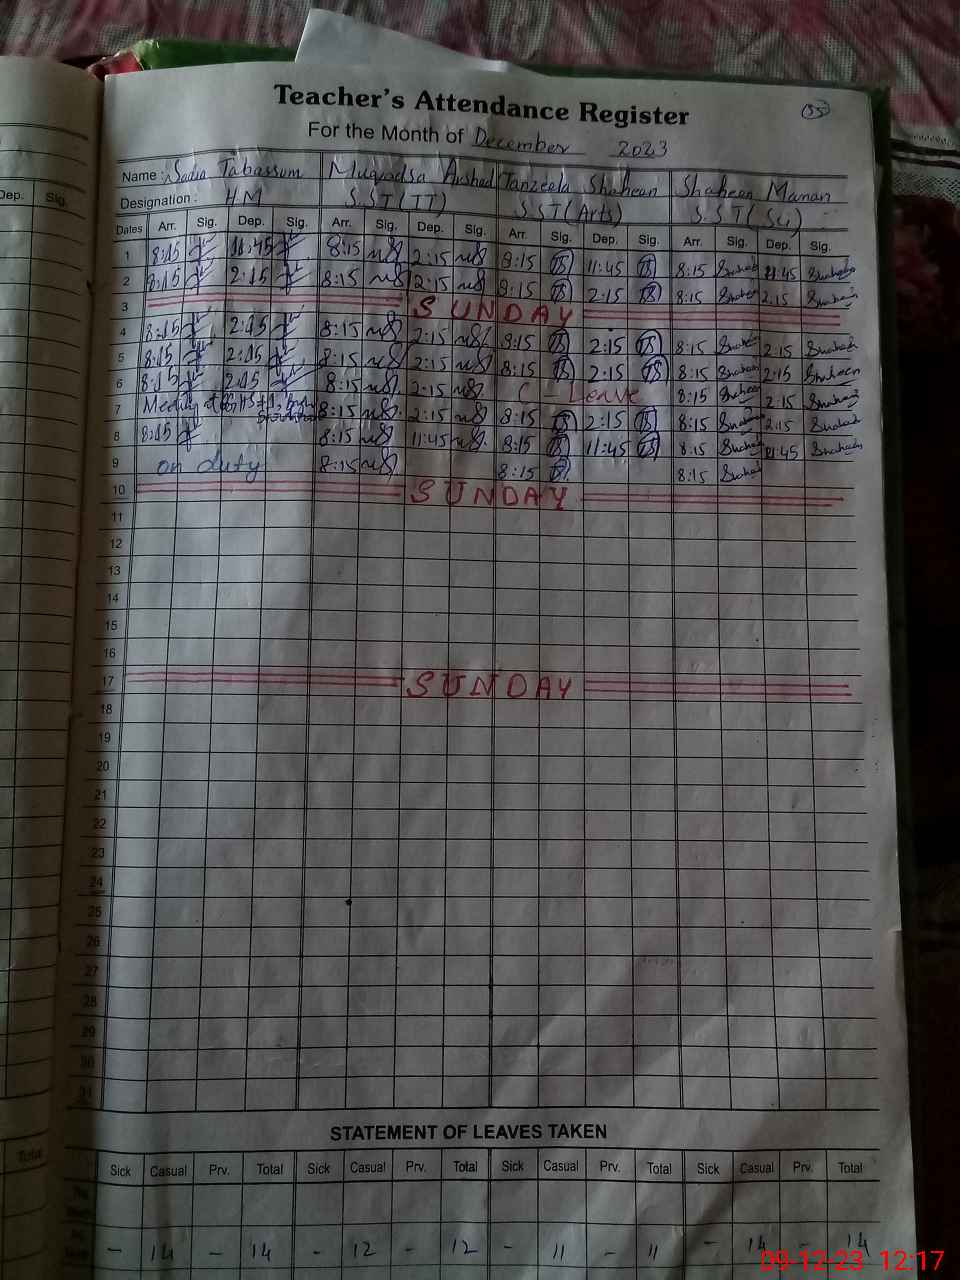 Teacher's Attendance Register
55
For the Month of December 2023
Dep. Sig.
Name : Sadia Tabassum Muqadsa Arshad Tanzeela Shaheen Shaheen Manan
Designation : HM S.ST(TT) S.ST(Arts) S.ST(Sci)
Dates Arr. Sig. Dep. Sig. Arr. Sig. Dep. Sig. Arr. Sig. Dep. Sig. Arr. Sig. Dep. Sig.
1 8:15 11:45 8:15 2:15 8:15 TS 11:45 TS 8:15 Shaheen 11:45 Shaheen
2 8:15 2:15 8:15 2:15 8:15 TS 2:15 TS 8:15 Shaheen 2:15 Shaheen
3 SUNDAY
4 8:15 2:15 8:15 2:15 8:15 TS 2:15 TS 8:15 Shaheen 2:15 Shaheen
5 8:15 2:15 8:15 2:15 8:15 TS 2:15 TS 8:15 Shaheen 2:15 Shaheen
6 8:15 2:15 8:15 2:15 C - Leave 8:15 Shaheen 2:15 Shaheen
7 8:15 2:15 8:15 TS 2:15 TS 8:15 Shaheen 2:15 Shaheen
8 8:15 8:15 11:45 8:15 TS 11:45 TS 8:15 Shaheen 11:45 Shaheen
9 on duty 8:15 8:15 TS 8:15 Shaheen
10 SUNDAY
11
12
13
14
15
16
17 SUNDAY
18
19
20
21
22
23
24
25
26
27
28
29
30
31
STATEMENT OF LEAVES TAKEN
Total
Sick Casual Prv. Total Sick Casual Prv. Total Sick Casual Prv. Total Sick Casual Prv. Total
- 14 - 14 - 12 - 12 - 11 - 11 - 14 - 14
09-12-23 12:17